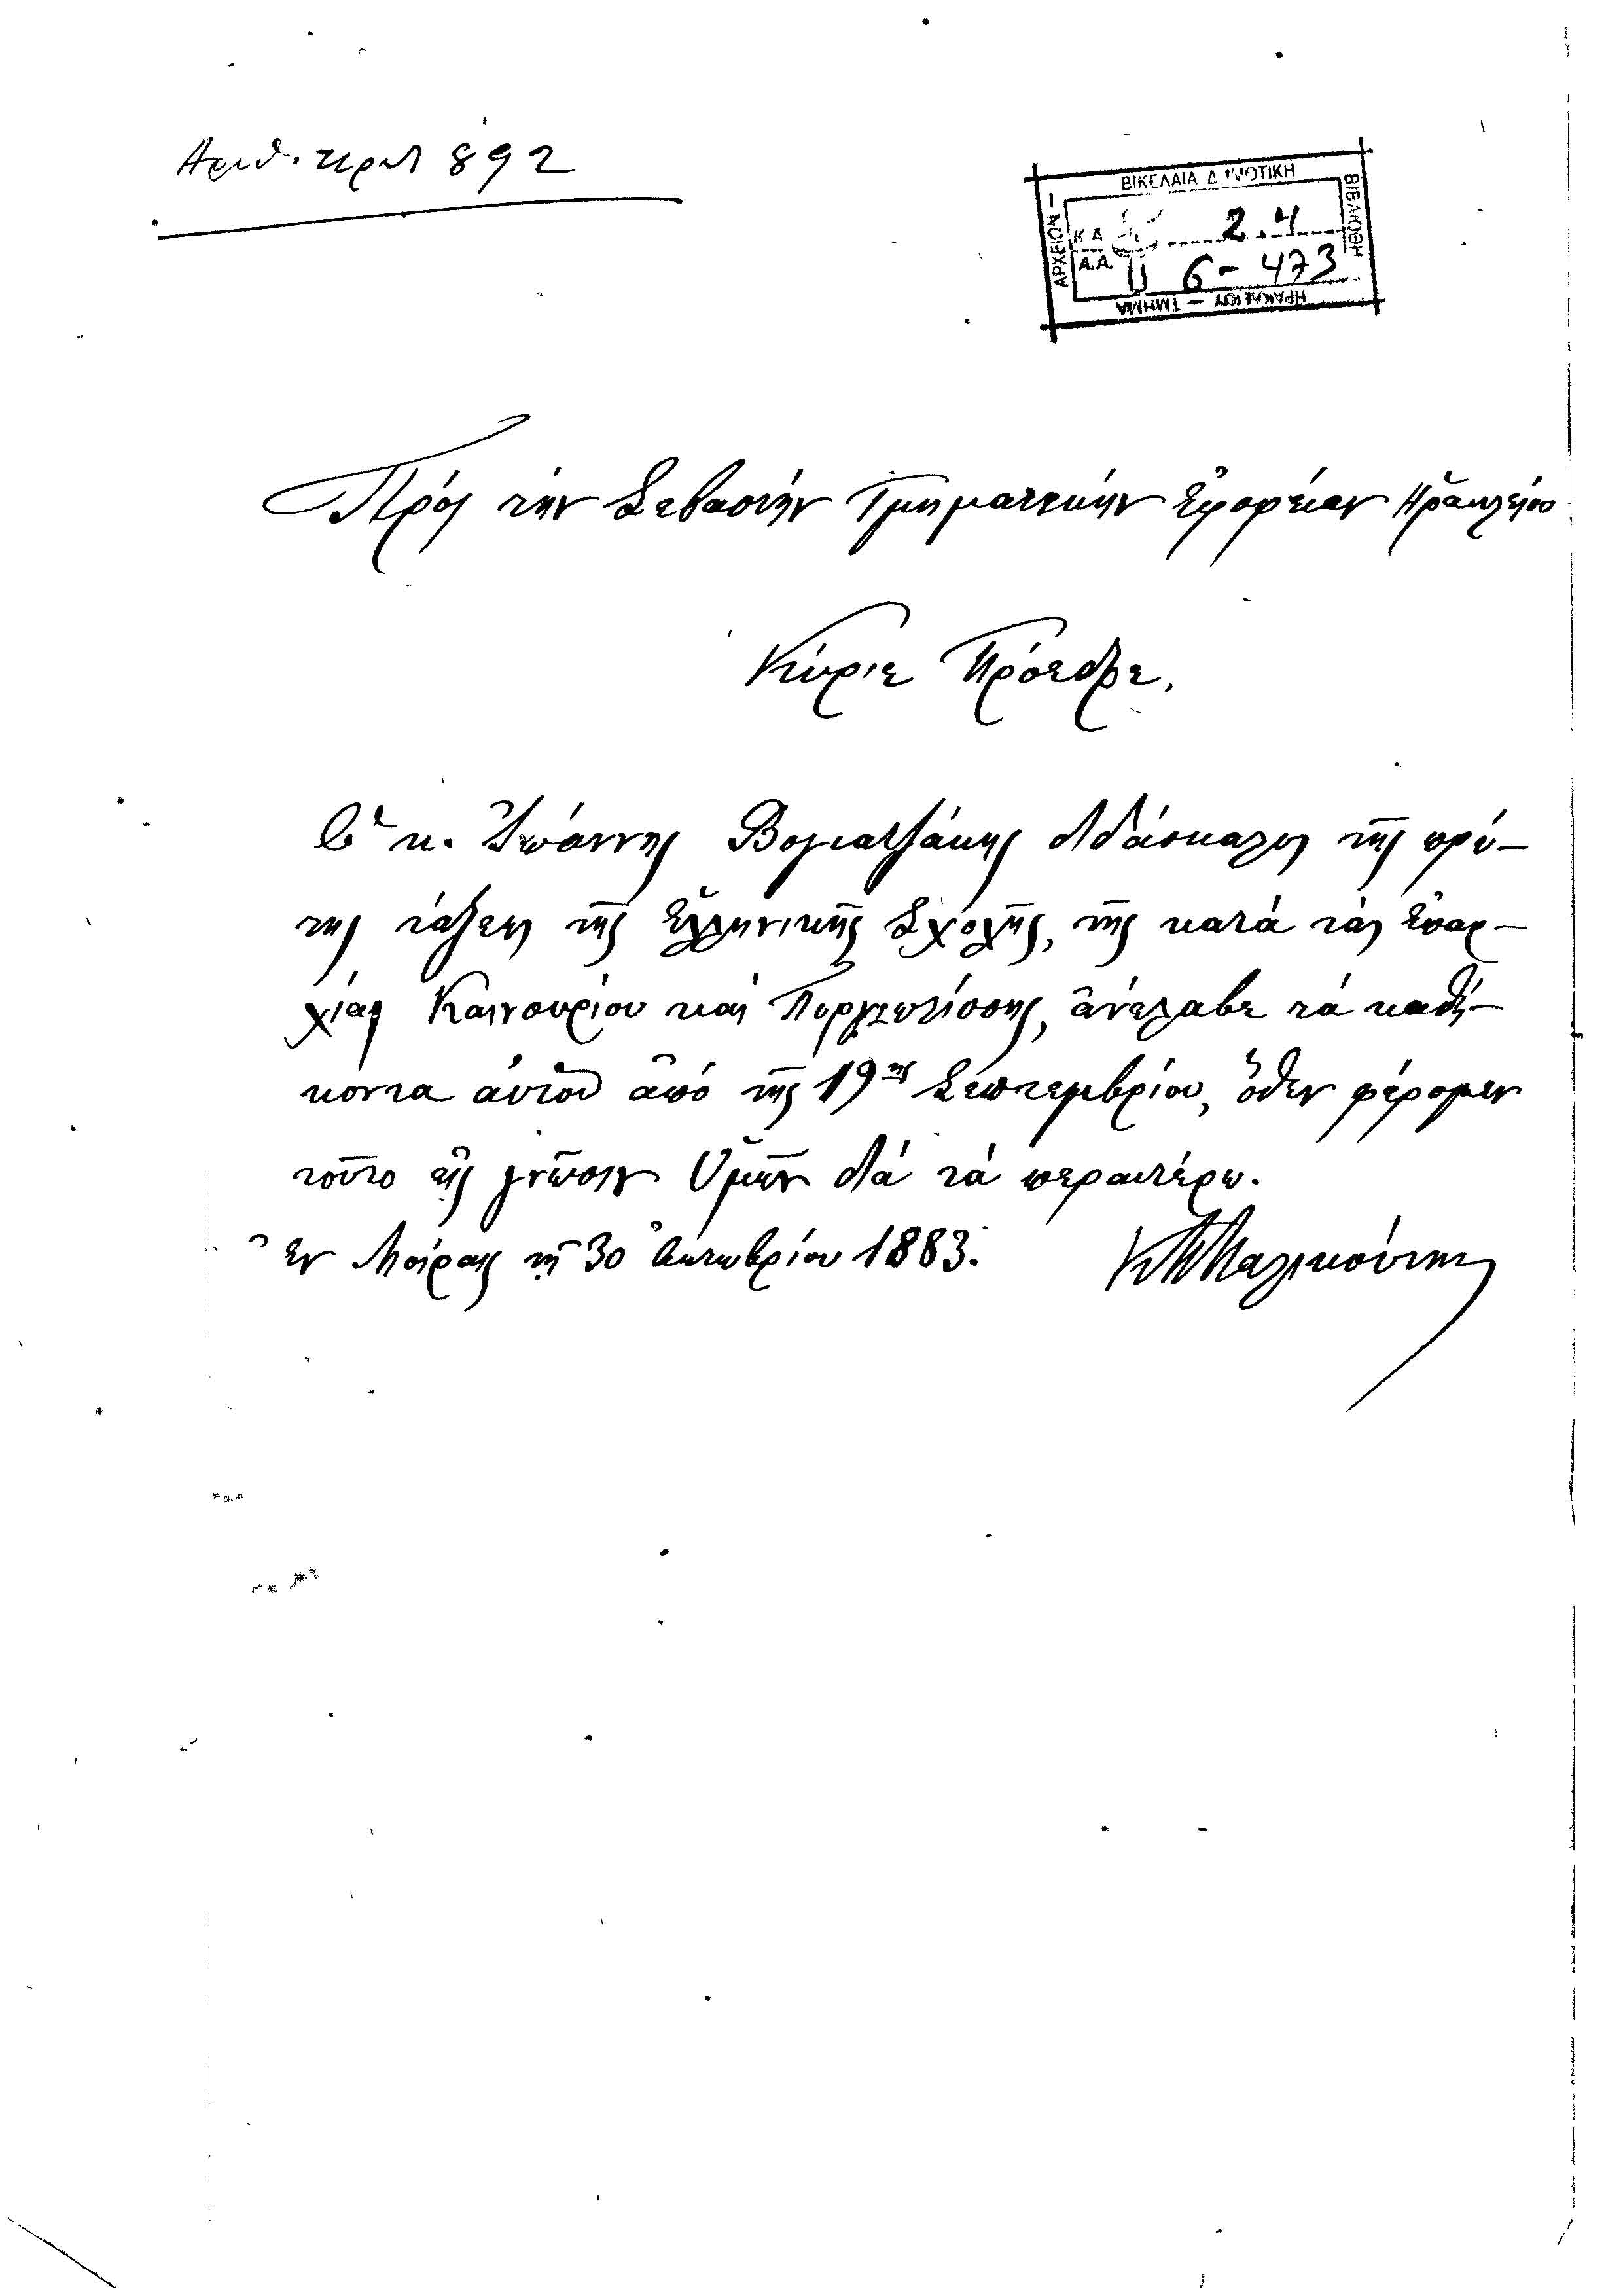 Αριθ. πρωτ 892
ΒΙΚΕΛΑΙΑ ΔΗΜΟΤΙΚΗ
ΒΙΒΛΙΟΘΗ
ΗΡΑΚΛΕΙΟΥ — ΤΜΗΜΑ
ΑΡΧΕΙΩΝ —
Κ.Α. 2.4
Α.Α. 6-473
Πρὸς τὴν Σεβαστὴν Τμηματικὴν Ἐφορείαν Ἡρακλείου
Κύριε Πρόεδρε,
Ὁ κ. Ἰωάννης Βογιατζάκης διδάσκαλος τῆς πρώ-
της τάξεως τῆς Ἑλληνικῆς Σχολῆς, τῆς κατὰ τὰς Ἐπαρ-
χίας Καινουρίου καὶ Πυργιωτίσσης, ἀνέλαβε τὰ καθή-
κοντα αὑτοῦ ἀπὸ τῆς 19ης Σεπτεμβρίου, ὅθεν φέρομεν
τοῦτο εἰς γνῶσιν Ὑμῶν διὰ τὰ περαιτέρω.
Ἐν Μοίραις τῇ 30 Ὀκτωβρίου 1883.